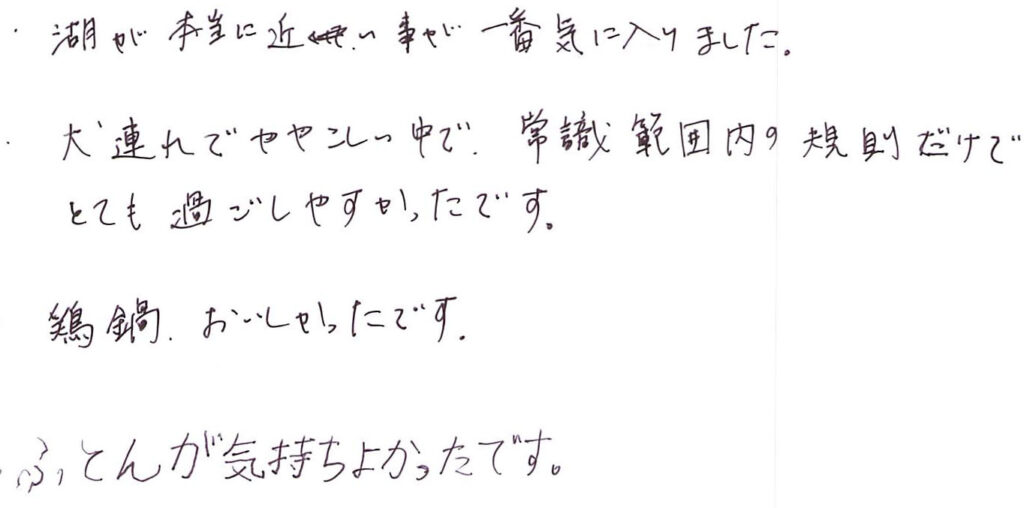 ・湖が本当に近い事が一番気に入りました。
・犬連れでややこしい中で、常識範囲内の規則だけで
とても過ごしやすかったです。
鶏鍋、おいしかったです。
・ふとんが気持ちよかったです。